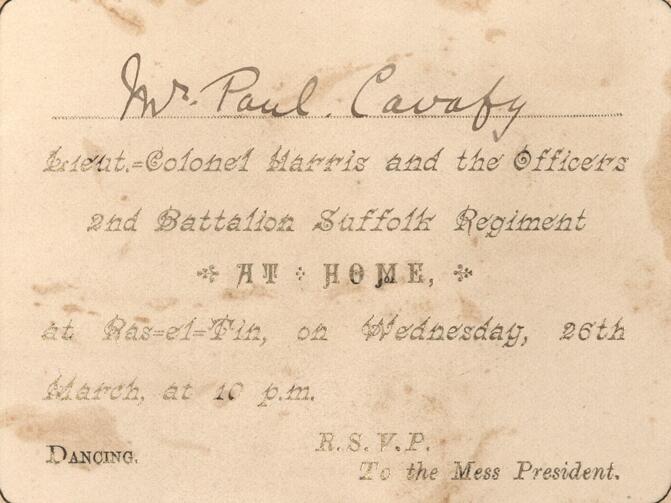 Mr. Paul. Cavafy
Lieut.=Colonel Harris and the Officers
2nd Battalion Suffolk Regiment
AT HOME,
at Ras=el=Tin, on Wednesday, 26th
March, at 10 p.m.
DANCING.
R.S.V.P.
To the Mess President.